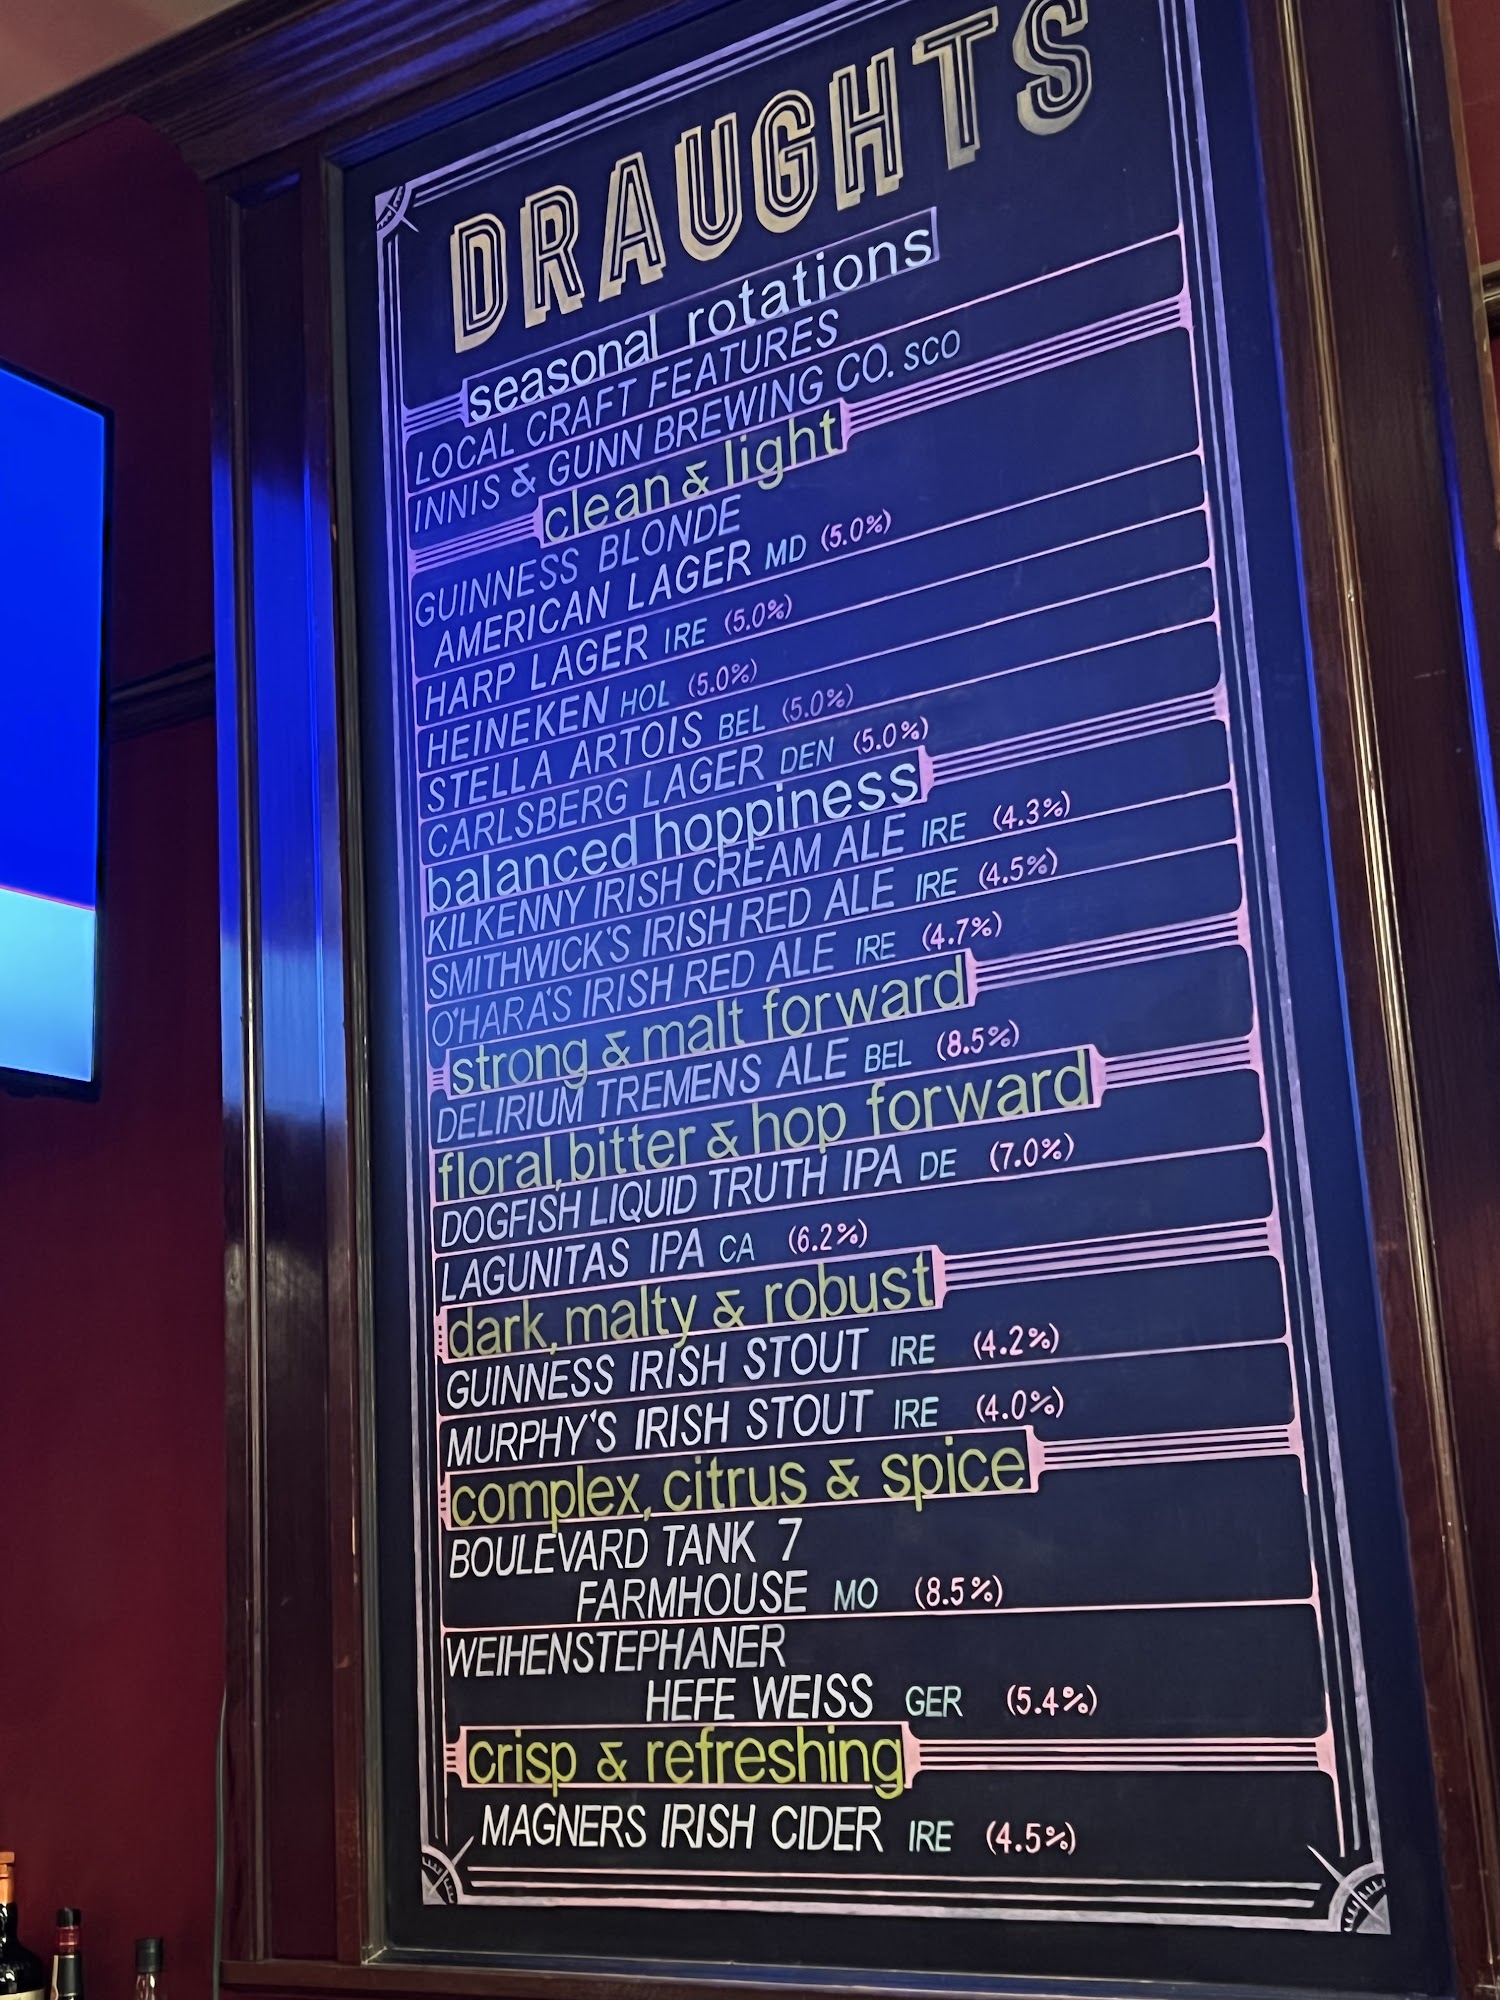 DRAUGHTS
seasonal rotations
LOCAL CRAFT FEATURES
INNIS & GUNN BREWING CO. SCO
clean & light
GUINNESS BLONDE
AMERICAN LAGER MD (5.0%)
HARP LAGER IRE (5.0%)
HEINEKEN HOL (5.0%)
STELLA ARTOIS BEL (5.0%)
CARLSBERG LAGER DEN (5.0%)
balanced hoppiness
KILKENNY IRISH CREAM ALE IRE (4.3%)
SMITHWICK'S IRISH RED ALE IRE (4.5%)
O'HARA'S IRISH RED ALE IRE (4.7%)
strong & malt forward
DELIRIUM TREMENS ALE BEL (8.5%)
floral, bitter & hop forward
DOGFISH LIQUID TRUTH IPA DE (7.0%)
LAGUNITAS IPA CA (6.2%)
dark, malty & robust
GUINNESS IRISH STOUT IRE (4.2%)
MURPHY'S IRISH STOUT IRE (4.0%)
complex, citrus & spice
BOULEVARD TANK 7
FARMHOUSE MO (8.5%)
WEIHENSTEPHANER
HEFE WEISS GER (5.4%)
crisp & refreshing
MAGNERS IRISH CIDER IRE (4.5%)